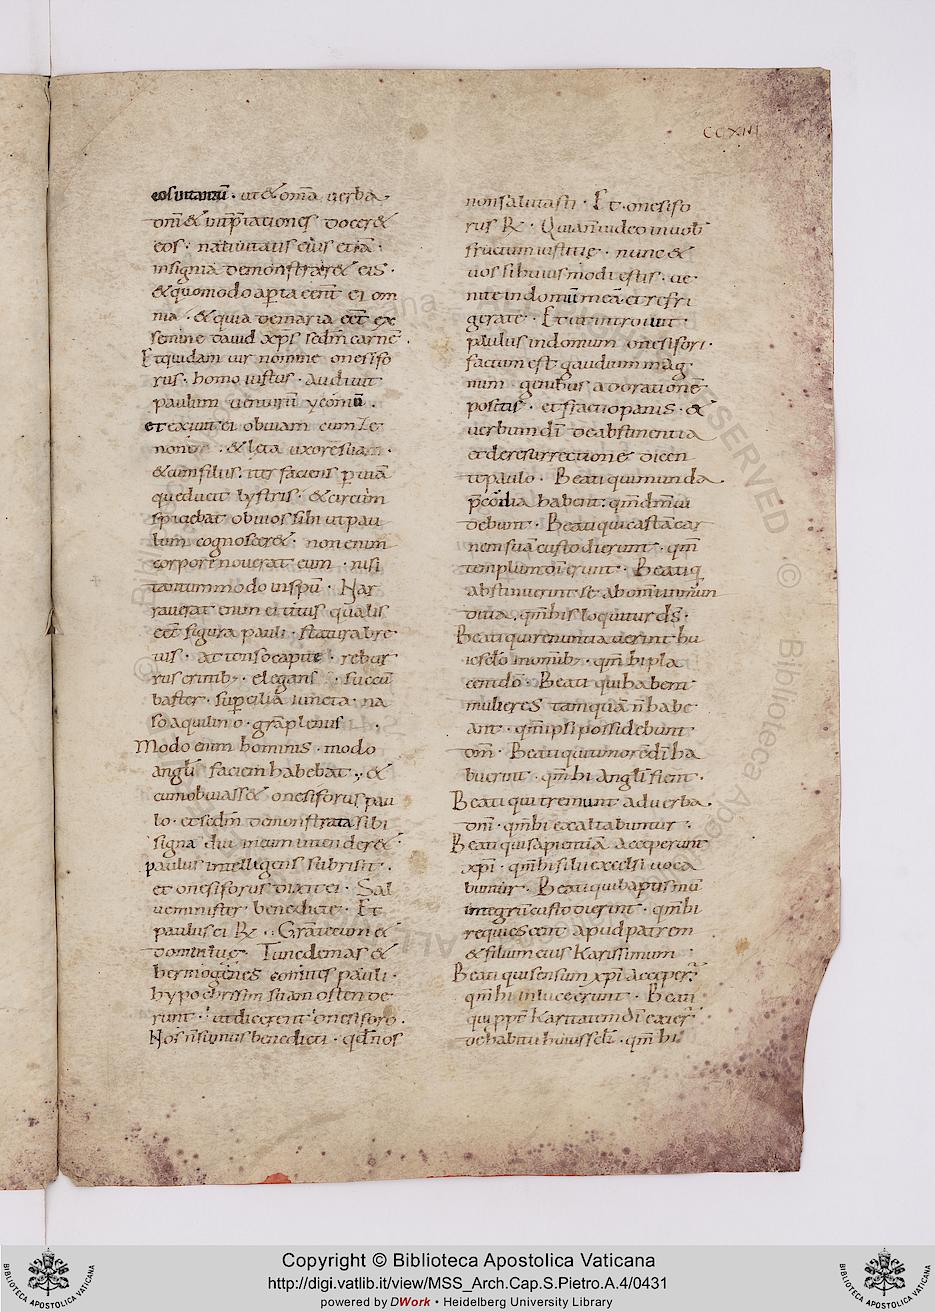 CCXIII
uoluntariũ · ut & om̃a uerba
dom̃ & int̃p̃tationes docer&
eos · natiuitatis eius etiã ·
insignia demonstrar& eis ·
& quomodo apta eẽnt ei om
nia · & quia de maria eẽt ex
semine dauid xp̃s sedm̃ carnẽ ·
Et quidam uir nomine onesifo
rus · homo iustus · audiuit
paulum uenturũ yconiũ ·
et exiuit ei obuiam cum Ze
none · & leta uxore sua ·
& cum filius · iter faciens p uiã
que ducit lystris · & circum
spiciebat obuios sibi ut pau
lum cognoscer& · non enim
corpore nouerat eum · nisi
tantummodo in sp̃u · Nar
rauerat enim ei titus qualis
eẽt figura pauli · statura bre
uis · attenso capite · rebur
rus crinib; · elegans · succu
baster · supcilia iuncta · na
so aquilino · gr̃a plenus ·
Modo enim hominis · modo
angli faciem habebat · &
cum obuiass& onesiforus pau
lo · et sedm̃ demonstrata sibi
signa diu in eum intender& ·
paulus intellegens subrisit ·
et onesiforus dixit ei · Sal
ue minister benedicte · Et
paulus ei R · Gr̃a tecum &
domui tuę · Tunc demas &
hermogenes comites pauli ·
hypochrisim suam osten de
runt · ut dicerent onesiforo ·
Nos nsumus benedicti · qd̃ nos
non salutasti · Et onesifo
rus R · Quia n̄ uideo in uob
fructum iustitię · nunc &
uos si huius modi estis · ue
nite in domũ meã et refri
gerate · Et ut introiuit ·
paulus in domum onesifori ·
factum est gaudium mag
num · genibus ad orationẽ
positis · et fractio panis · &
uerbum dĩ de abstinentia
et de resurrectione dicen
te paulo · Beati qui munda
p̃cordia habent · qm̃ dm̃ ui
debunt · Beati qui castã car
nem suã custodierunt · qm̃
templum dĩ erunt · Beati q
abstinuerint se ab om̃ inmun
ditia · qm̃ his loquitur ds̃ ·
Beati qui renuntiauerint hu
ic sclo · qm̃ hi pla
cent dõ · Beati qui habent
mulieres tamquã n̄ habe
ant · qm̃ ipsi possidebunt
dm̃ · Beati qui timorẽ dĩ ha
buerint · qm̃ hi angli fient ·
Beati qui tremunt ad uerba
dom̃ · qm̃ hi exaltabuntur ·
Beati qui sapientiã acceperunt
xpĩ · qm̃ hi filii excelsi uoca
buntur · Beati qui baptismũ
integrũ custodierint · qm̃ hi
requiescent apud patrem
& filium eius Karissimum ·
Beati qui sensum xpĩ acceper̃
qm̃ hi in luce erunt · Beati
qui ppt̃ Karitatem dĩ exier̃
de habitu huius scli · qm̃ hi
Copyright © Biblioteca Apostolica Vaticana
http://digi.vatlib.it/view/MSS_Arch.Cap.S.Pietro.A.4/0431
powered by DWork • Heidelberg University Library
BIBLIOTECA APOSTOLICA VATICANA
BIBLIOTECA APOSTOLICA VATICANA